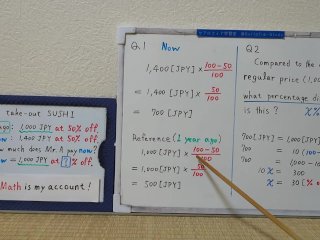 take-out SUSHI
ago: 1,000 JPY at 50% off.
now = 1,400 JPY at ? % off.
how much does Mr. A pay now?
Math is my account!
Q.1 Now
1,400 [JPY] × 100-50 / 100
= 1,400 [JPY] × 50 / 100
= 700 [JPY]
Reference (1 year ago)
1,000 [JPY] × 100-50 / 100
= 1,000 [JPY] × 50 / 100
= 500 [JPY]
Q.2
Compared to the
regular price (1,0
what percentage di
is this ? x%
700 [JPY] = 1,000
700 = 10 (100
10x = 1,000-
x = 30 [% o